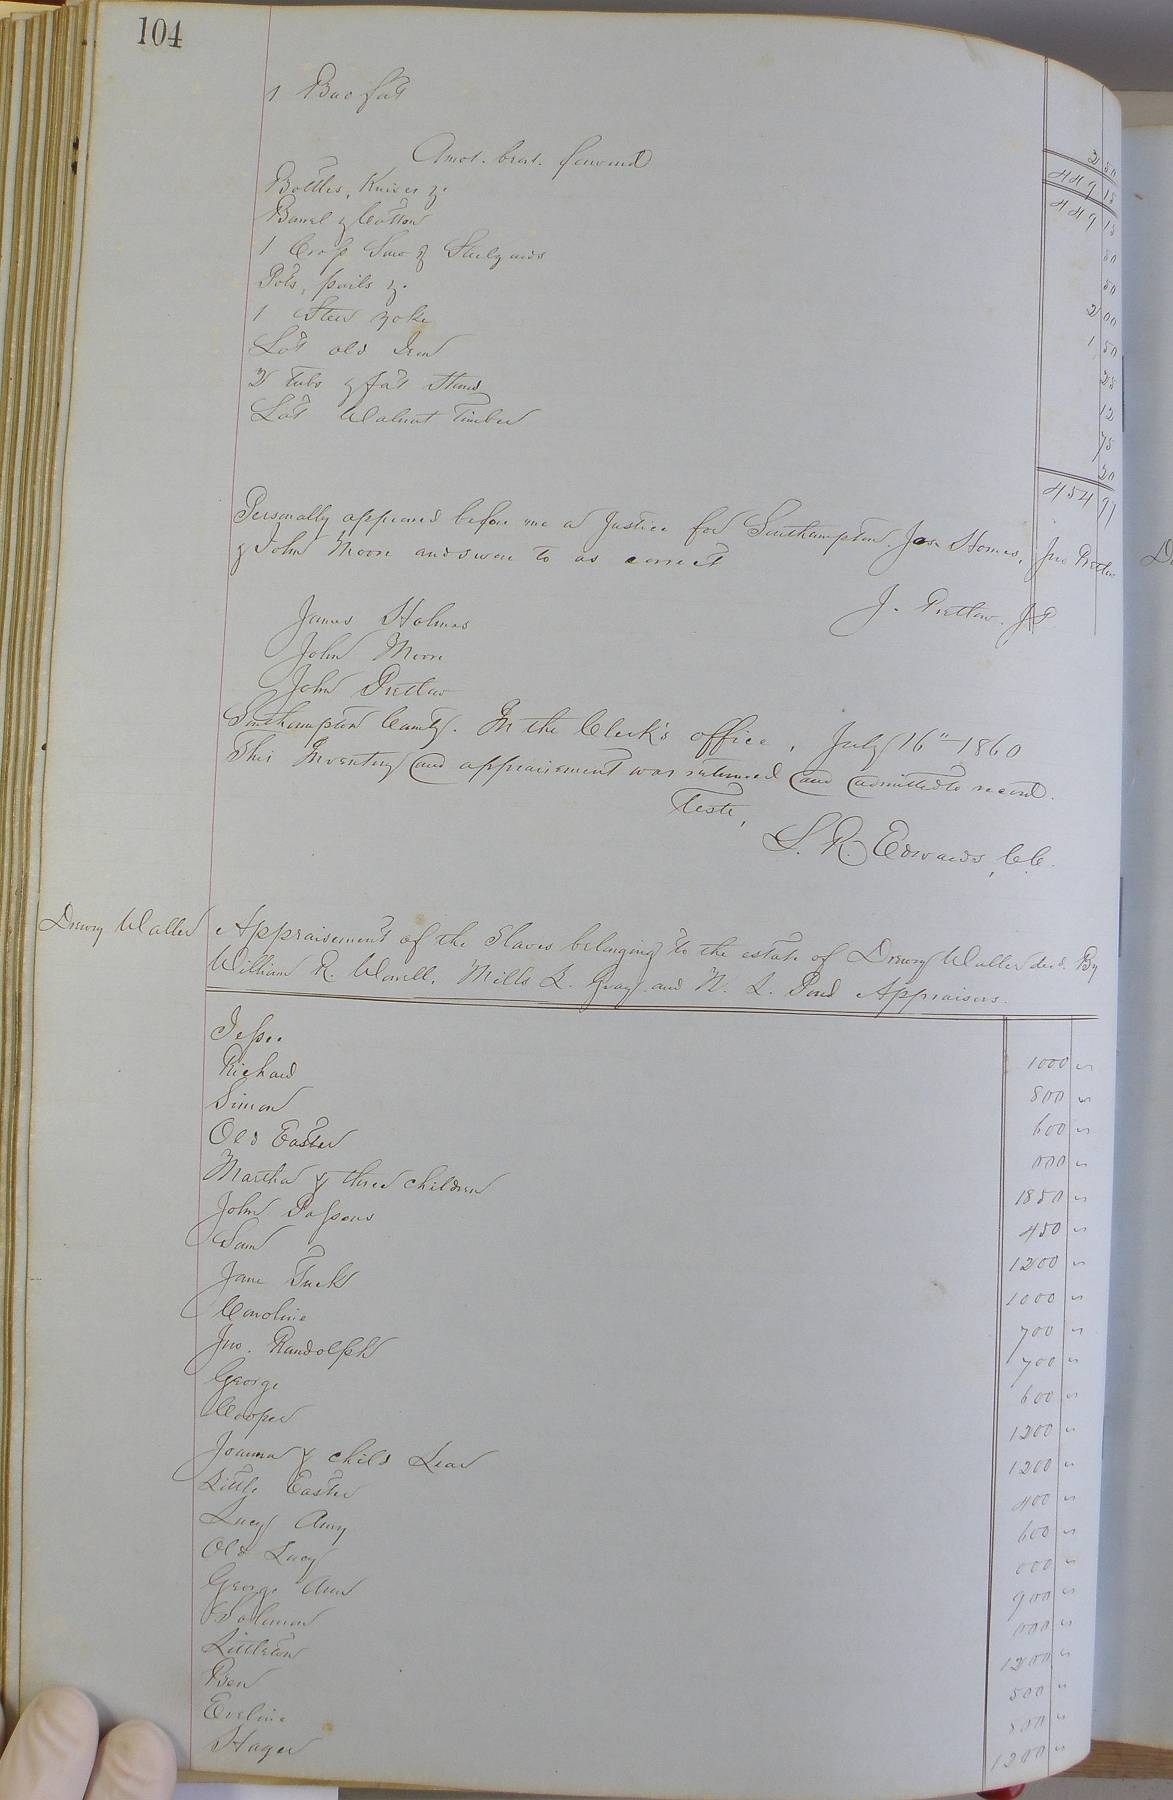 104
1 Bac fat 2 50
449 15
Amot. brot. forward 449 15
Bottles, Knives &. 50
Barrel & Cotton 50
1 Cross Saw & Steelyards 2 00
Pots, pails &. 1 50
1 Steer yoke 25
Lot old Iron 12
2 tubs & fat Stand 75
Lot Walnut Timber 20
454 97
Personally appeared before me a Justice for Southampton. Jas Homes, Jno Pretlow
& John Moore and swore to as correct
J. Pretlow. JP
James Holmes
John Moore
John Pretlow
Southampton County. In the Clerk's office, July 16" 1860
This Inventory and appraisement was returned and admitted to record.
Teste,
L. R. Edwards, C.C.
Drewry Waller
Appraisement of the Slaves belonging to the estate of Drewry Waller decd. By
William R. Worrell, Mills L. Gray and N. L. Pond Appraisers.
Jesse 1000
Richard 800
Simon 600
Old Easter 000
Martha & three children 1850
John Passons 450
Sam 1200
Jane Tuck 1000
Caroline 700
Jno. Randolph 700
George 600
Cooper 1200
Joanna & child Lear 1200
Little Easter 400
Lucy Amy 600
Old Lucy 000
George Ann 900
Soloman 000
Littleton 1200
Ben 500
Eveline 800
Hager 1200